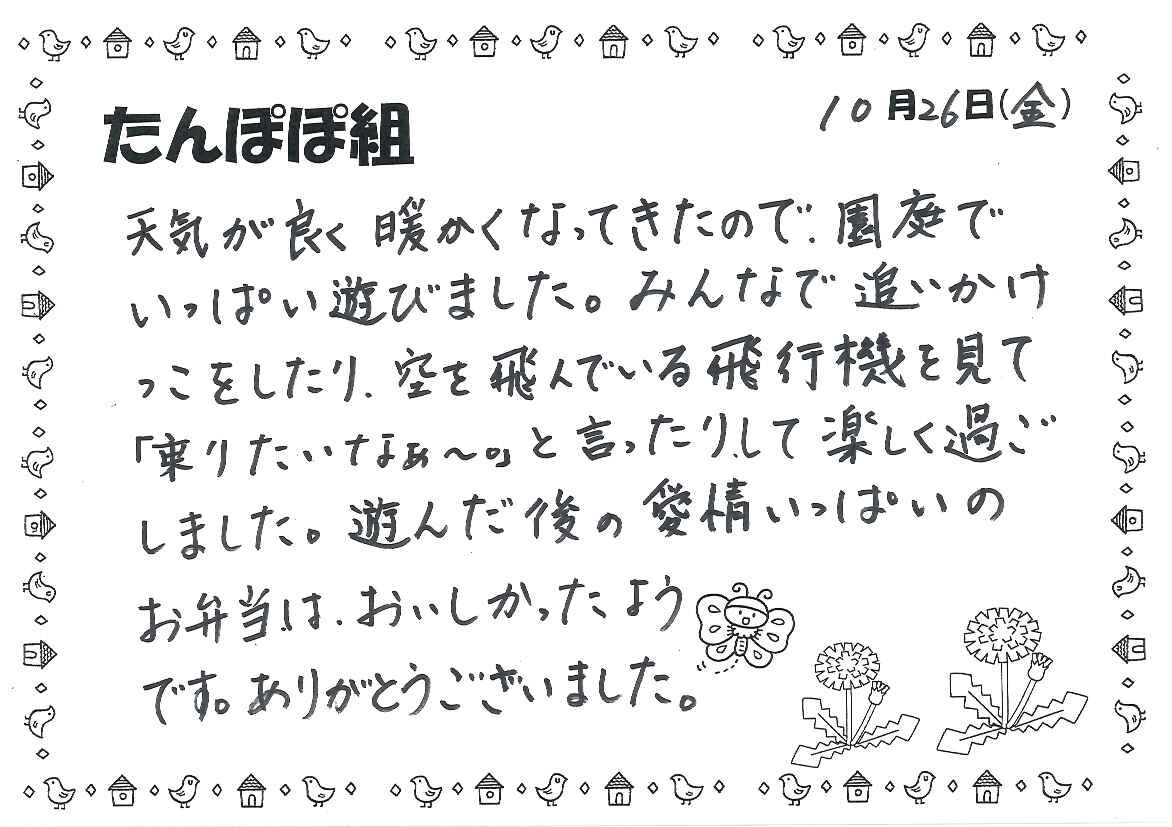 たんぽぽ組
10月26日(金)
天気が良く暖かくなってきたので、園庭で
いっぱい遊びました。みんなで追いかけ
っこをしたり、空を飛んでいる飛行機を見て
「乗りたいなぁ〜。」と言ったりして楽しく過ご
しました。遊んだ後の愛情いっぱいの
お弁当は、おいしかったよう
です。ありがとうございました。